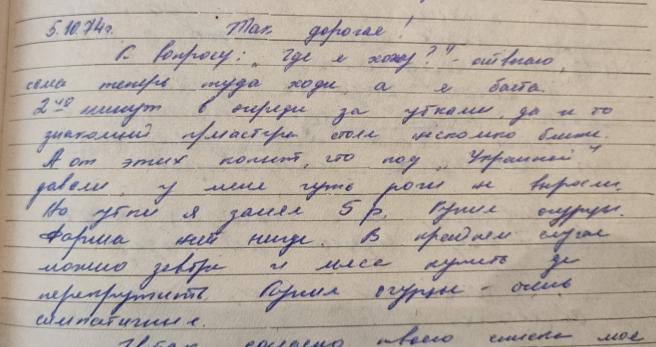 5.10.74г. Так дорогая!
К вопросу: „Где я хожу?" - отвечаю,
сама теперь туда ходи, а я баста.
2 минут в очереди за утками, да и то
знакомый мастера стоял несколько ближе.
А от этих копыт, что под „Украиной"
давали, у меня чуть роги не выросли.
На утки я занял 5 р. Купил огурцы.
Фарша нет нигде. В крайнем случае
можно завтра и мяса купить да
перекрутить. Купил огурцы - очень
симпатичные.
Итак, согласно твоего списка мое